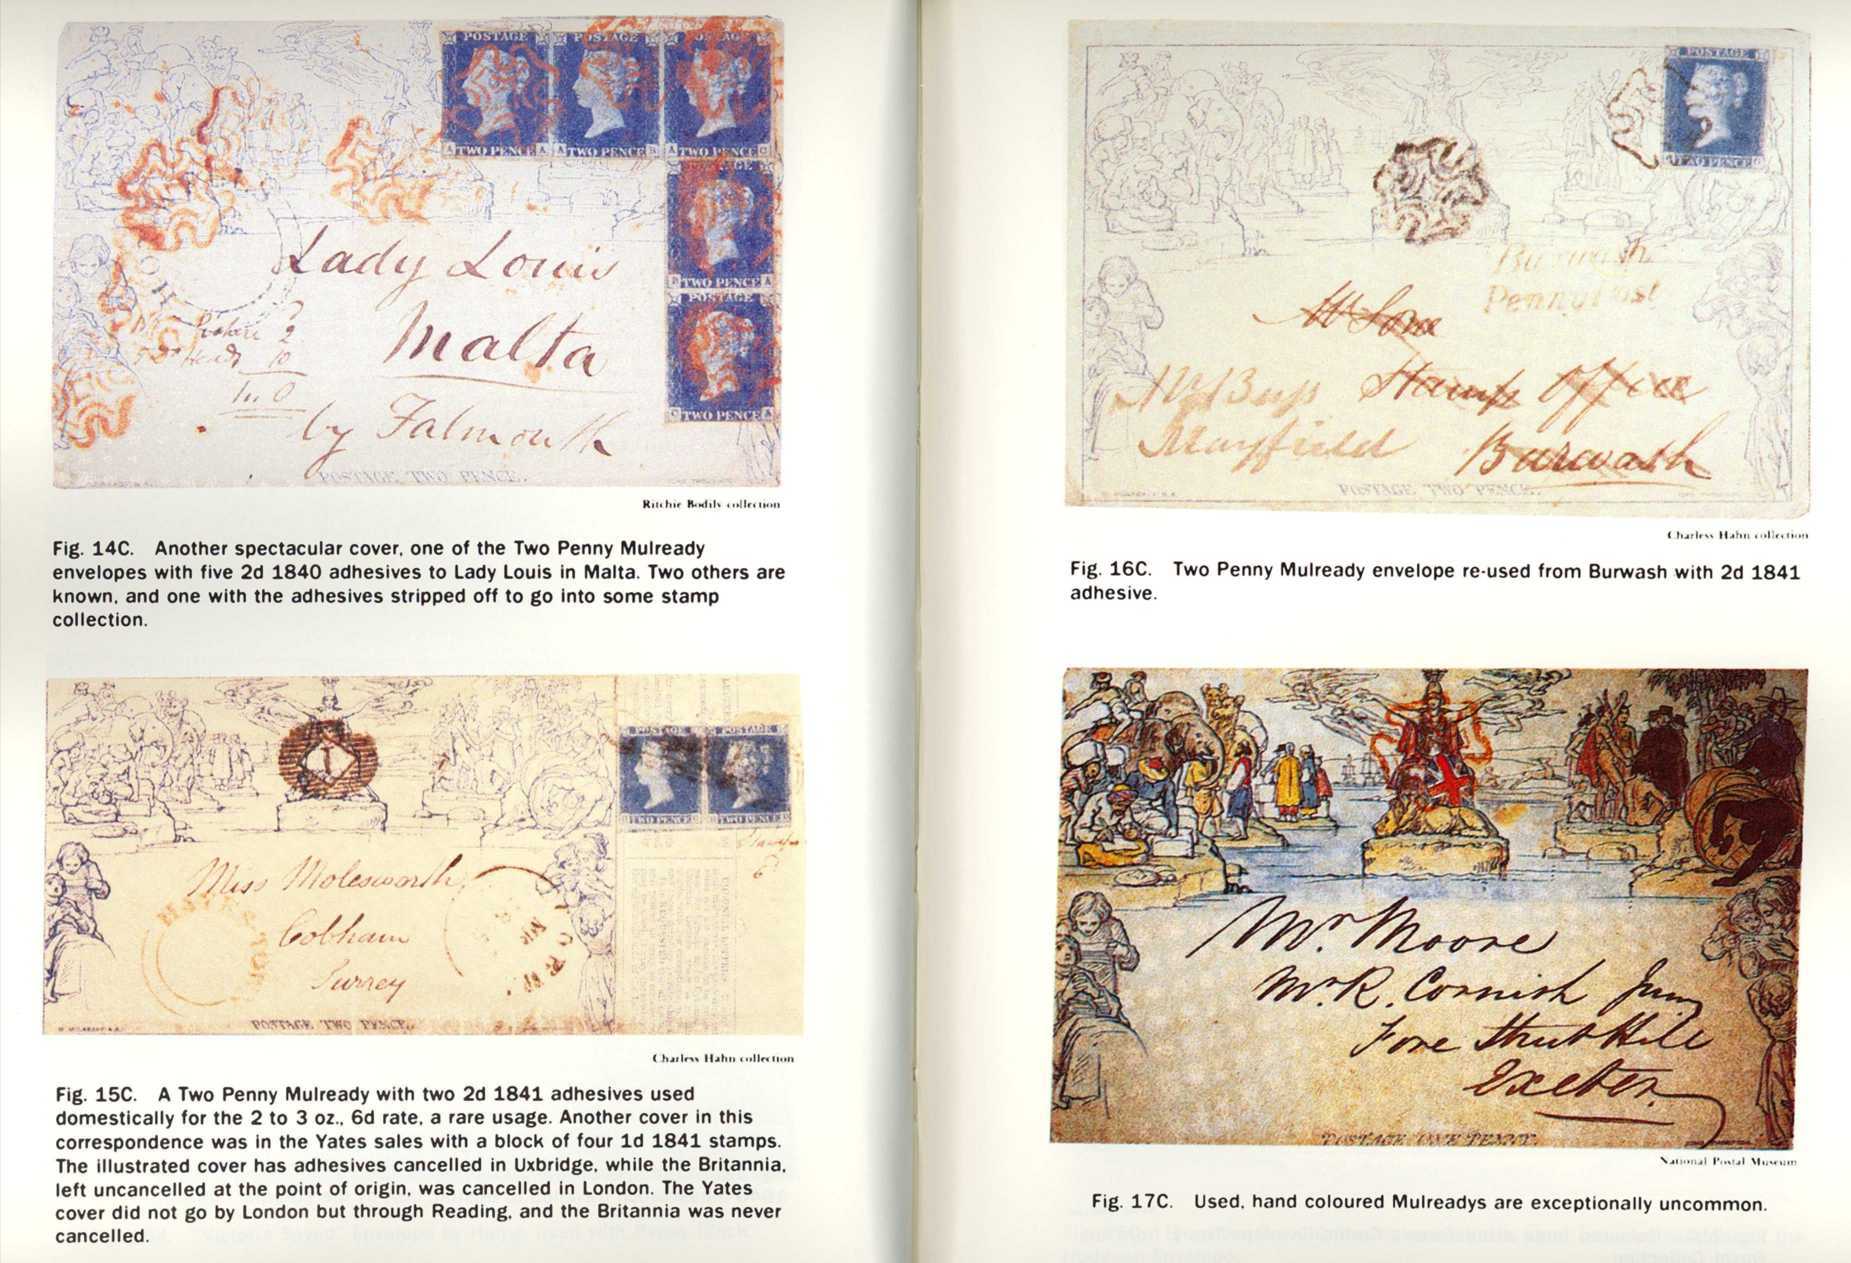 POSTAGE POSTAGE POSTAGE
A TWO PENCE A A TWO PENCE B A TWO PENCE C
POSTAGE
B TWO PENCE A
POSTAGE
C TWO PENCE A
Lady Louis
Malta
by Falmouth
POSTAGE TWO PENCE.
Ritchie Bodily collection
Fig. 14C. Another spectacular cover, one of the Two Penny Mulready
envelopes with five 2d 1840 adhesives to Lady Louis in Malta. Two others are
known, and one with the adhesives stripped off to go into some stamp
collection.
POSTAGE POSTAGE
TWO PENCE TWO PENCE
1
6
Miss Molesworth
Cobham
Surrey
POSTAGE TWO PENCE.
Charless Hahn collection
Fig. 15C. A Two Penny Mulready with two 2d 1841 adhesives used
domestically for the 2 to 3 oz., 6d rate, a rare usage. Another cover in this
correspondence was in the Yates sales with a block of four 1d 1841 stamps.
The illustrated cover has adhesives cancelled in Uxbridge, while the Britannia,
left uncancelled at the point of origin, was cancelled in London. The Yates
cover did not go by London but through Reading, and the Britannia was never
cancelled.
POSTAGE
TWO PENCE
Burwash
Penny Post
Mr Buss Stamp Office
Mayfield Burwash
POSTAGE TWO PENCE.
Charless Hahn collection
Fig. 16C. Two Penny Mulready envelope re-used from Burwash with 2d 1841
adhesive.
Mr. Moore
Mr. R. Cornish Junr
Fore Street Hill
Exeter.
POSTAGE ONE PENNY.
National Postal Museum
Fig. 17C. Used, hand coloured Mulreadys are exceptionally uncommon.